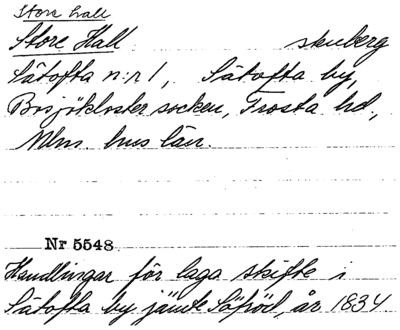 Store hall
Store Hall skuberg
Sätofta n:r 1, Sätofta by,
Bosjökloster socken, Frosta hd.,
Mlm. hus län.
Nr 5548
Handlingar för laga skifte i
Sätofta by jämte Sjöröd, år 1834